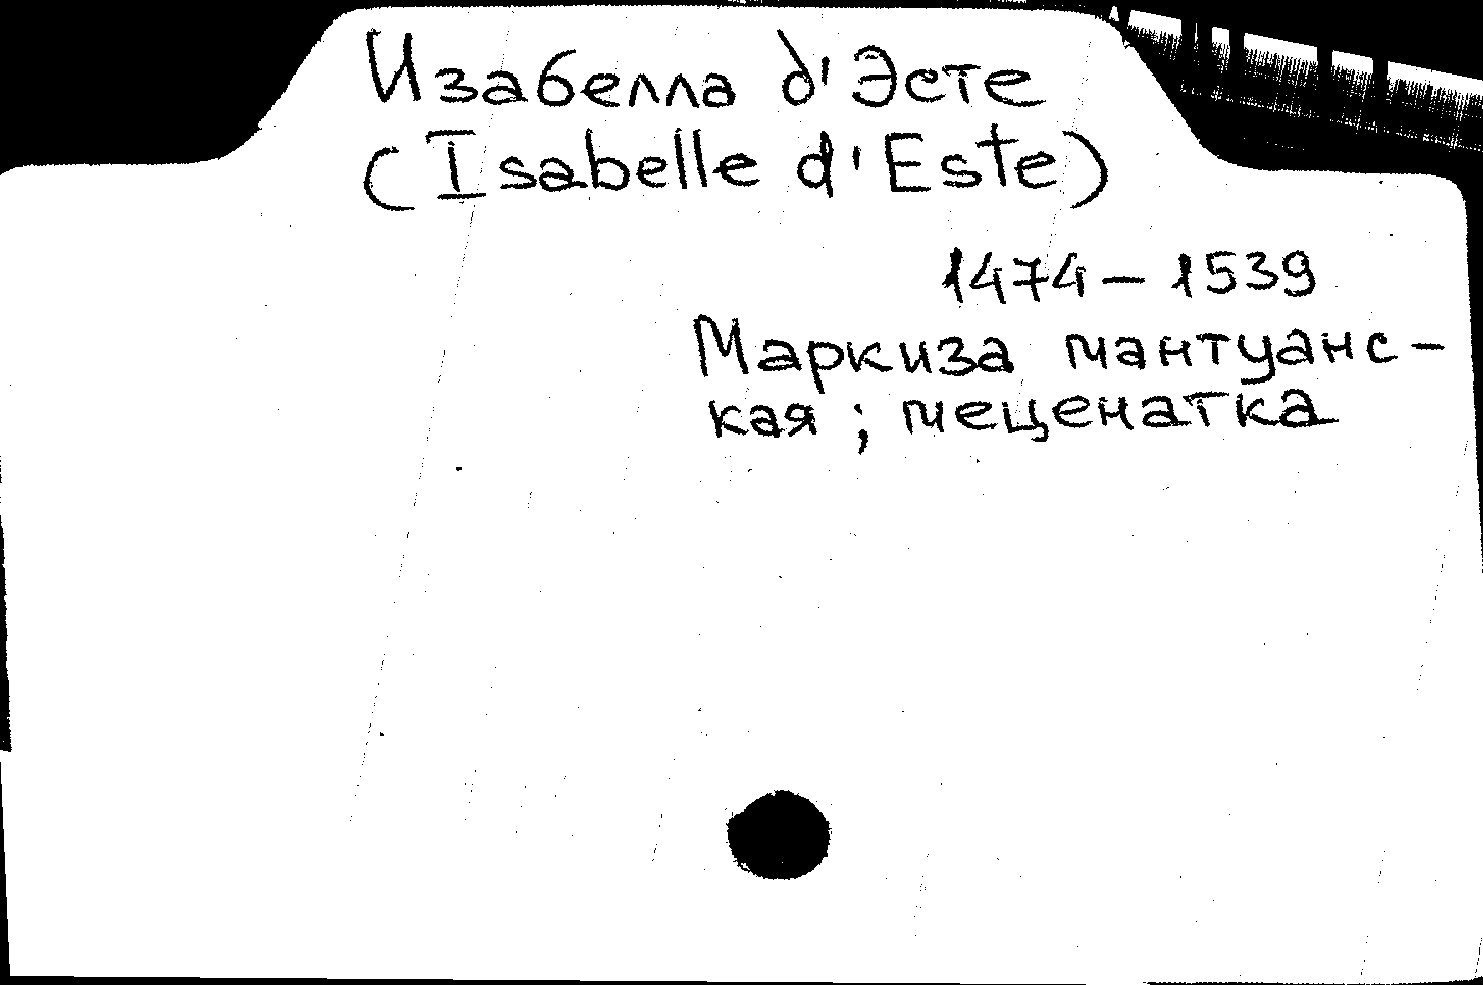 Изабелла д'Эсте
(Isabelle d'Este)
1474 – 1539
Маркиза мантуанс-
кая; меценатка